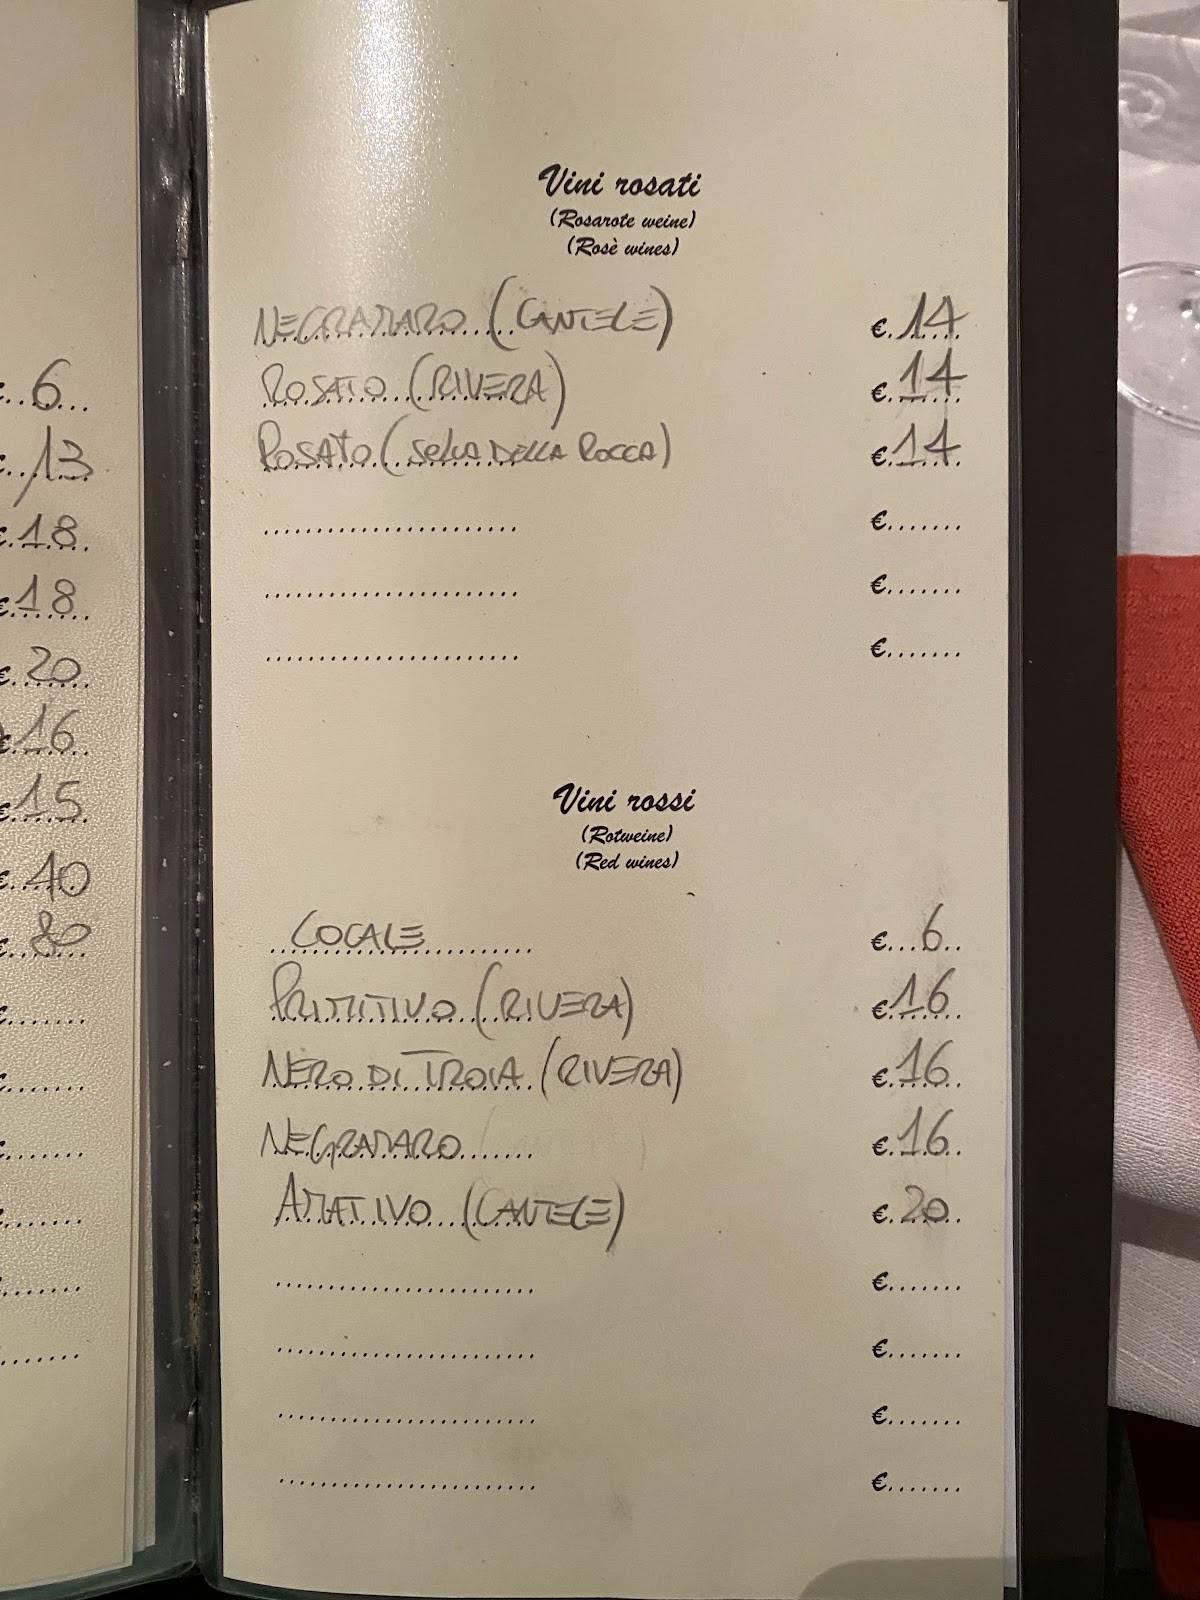 €..6...
€../13
€.18..
€.18..
€.20..
€16
€15
€.40
€..80
€.......
€.......
€.......
€.......
€.......
Vini rosati
(Rosarote weine)
(Rosè wines)
NEGRAMARO (CANTELE) €.14
ROSATO (RIVERA) €.14
ROSATO (SELVA DELLA ROCCA) €.14
....................... €.......
....................... €.......
....................... €.......
Vini rossi
(Rotweine)
(Red wines)
LOCALE €...6..
PRIMITIVO (RIVERA) €16
NERO DI TROIA (RIVERA) €.16
NEGRAMARO €.16
AMATIVO (CANTELE) €.20..
....................... €.......
....................... €.......
....................... €.......
....................... €.......